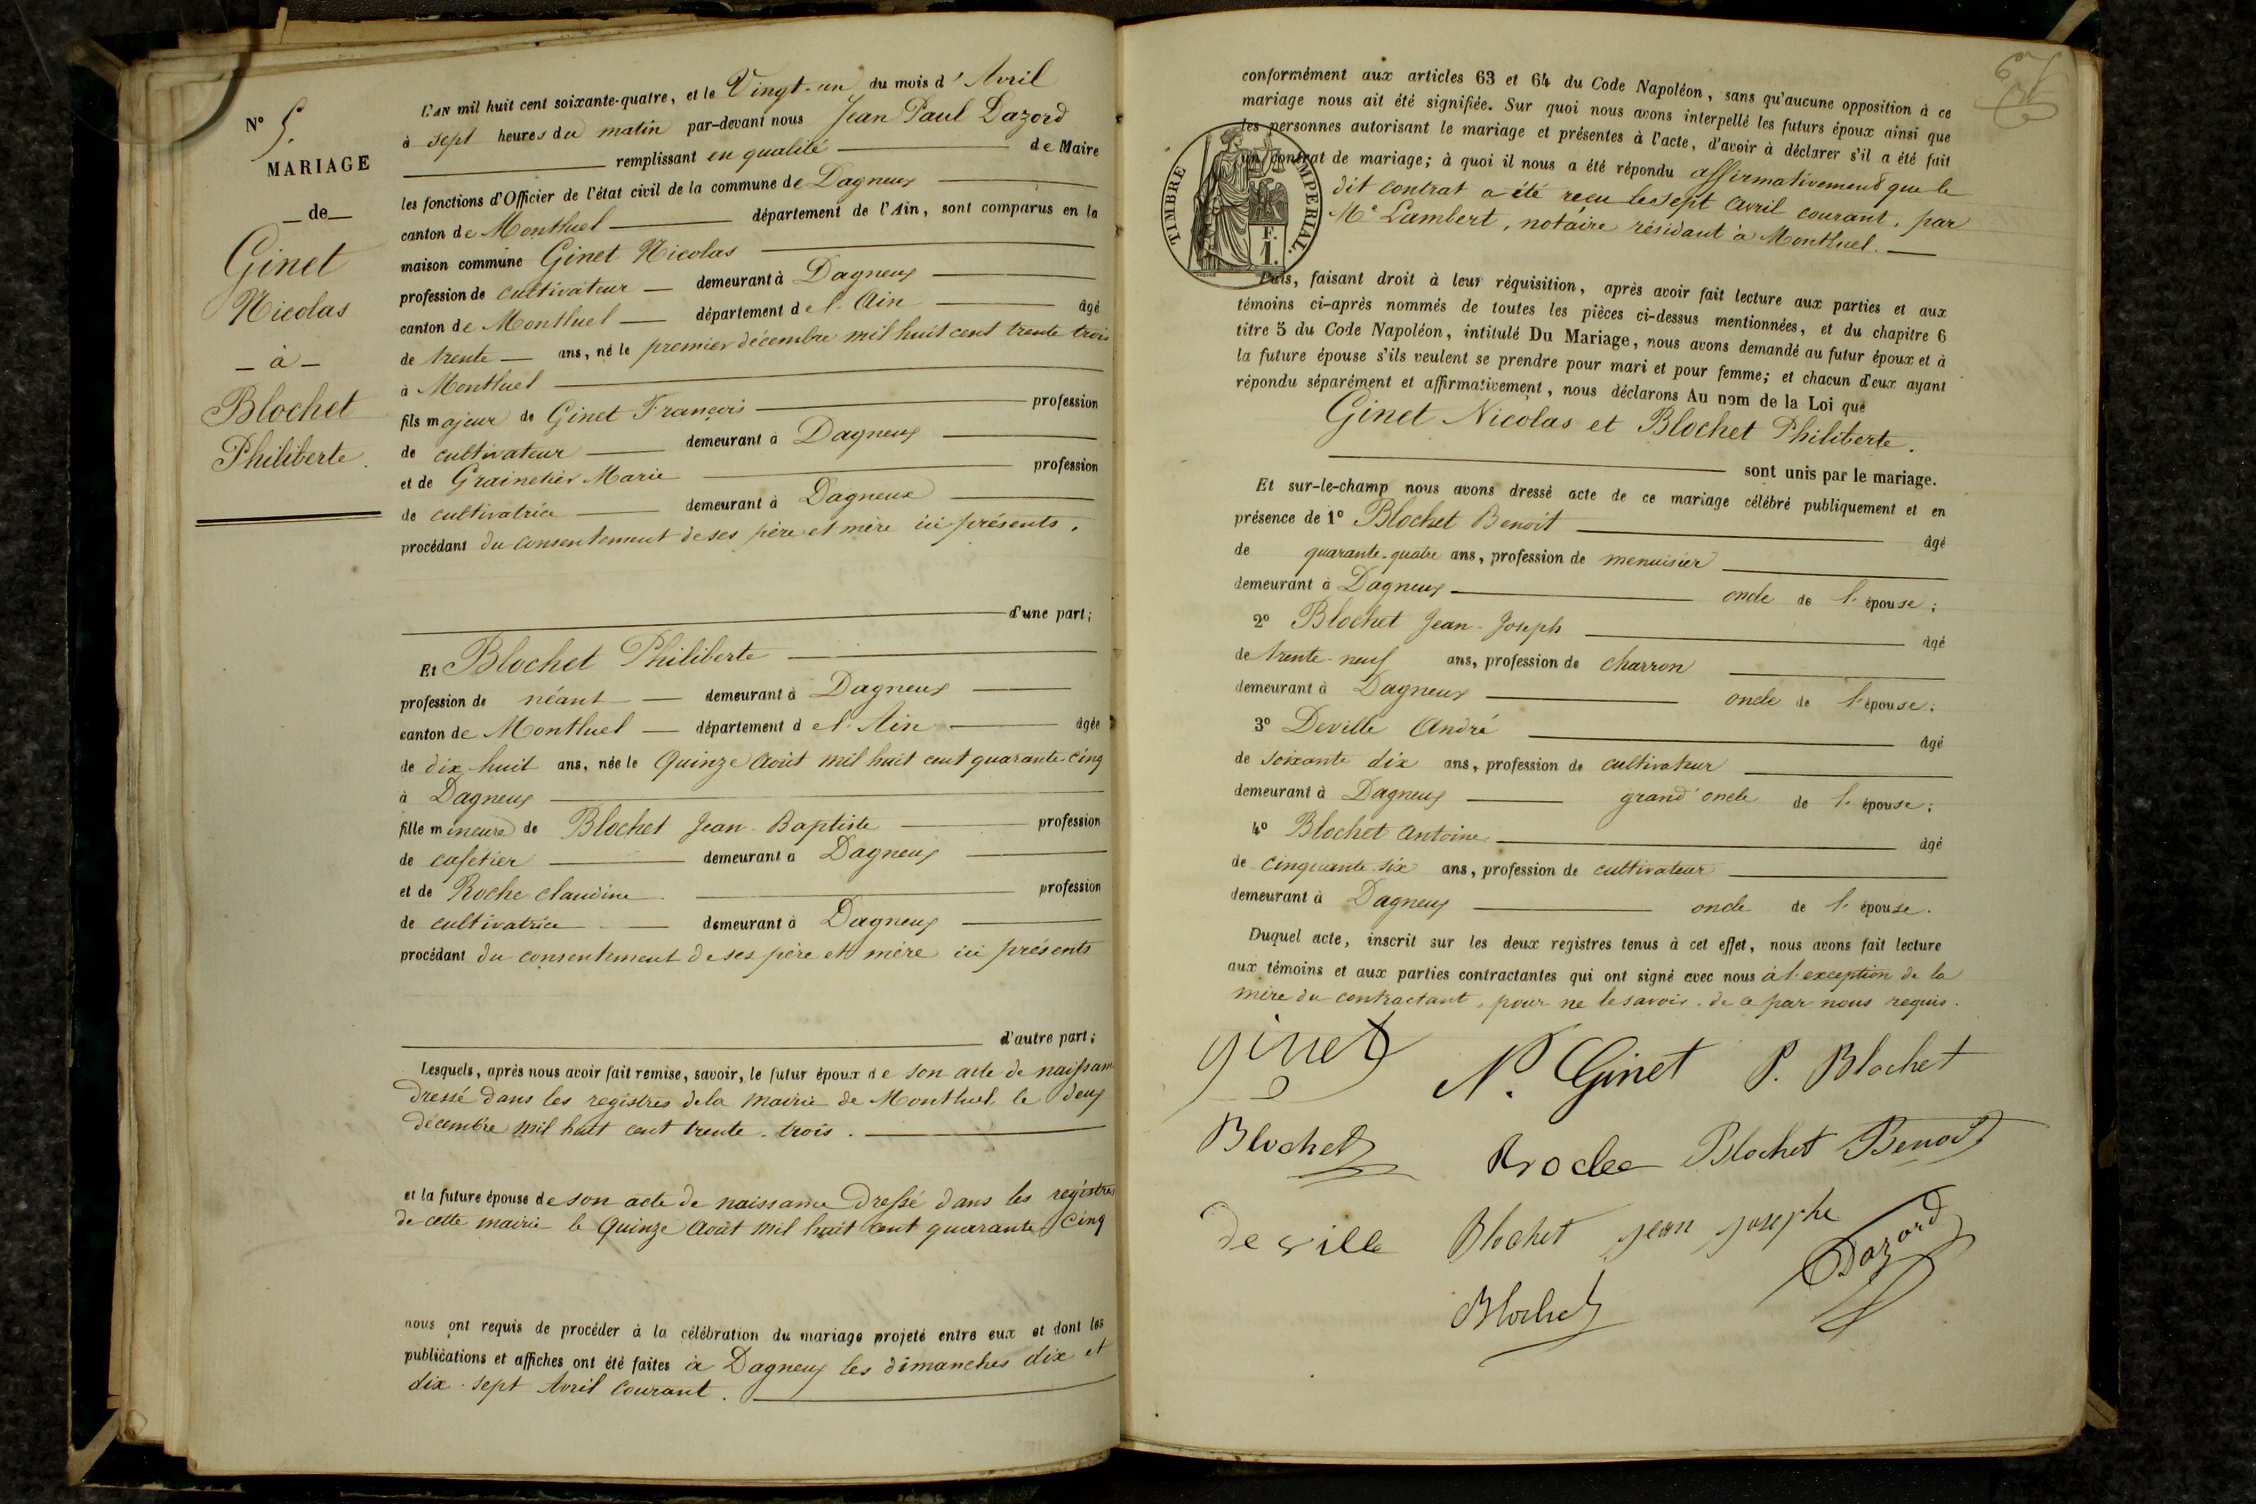 N° 5.
MARIAGE
de
Ginet
Nicolas
à
Blochet
Philiberte.
L'AN mil huit cent soixante-quatre, et le Vingt-un du mois d'Avril
à sept heures du matin par-devant nous Jean Paul Dazord
remplissant en qualité de Maire
les fonctions d'Officier de l'état civil de la commune de Dagneux
canton de Montluel département de l'Ain, sont comparus en la
maison commune Ginet Nicolas
profession de cultivateur demeurant à Dagneux
canton de Montluel département de l'Ain âgé
de trente ans, né le premier décembre mil huit cent trente trois
à Montluel
fils majeur de Ginet François profession
de cultivateur demeurant à Dagneux
et de Grainetier Marie profession
de cultivatrice demeurant à Dagneux
procédant du consentement de ses père et mère ici présents.
d'une part;
Et Blochet Philiberte
profession de néant demeurant à Dagneux
canton de Montluel département de l'Ain âgée
de dix-huit ans, née le Quinze Août mil huit cent quarante-cinq
à Dagneux
fille mineure de Blochet Jean-Baptiste profession
de cafetier demeurant à Dagneux
et de Roche Claudine profession
de cultivatrice demeurant à Dagneux
procédant du consentement de ses père et mère ici présents
d'autre part;
Lesquels, après nous avoir fait remise, savoir, le futur époux de son acte de naissance
dressé dans les registres de la mairie de Montluel le deux
décembre mil huit cent trente-trois.
et la future épouse de son acte de naissance dressé dans les registres
de cette mairie le Quinze Août mil huit cent quarante cinq
nous ont requis de procéder à la célébration du mariage projeté entre eux et dont les
publications et affiches ont été faites à Dagneux les dimanches dix et
dix-sept Avril courant.
67
conformément aux articles 63 et 64 du Code Napoléon, sans qu'aucune opposition à ce
mariage nous ait été signifiée. Sur quoi nous avons interpellé les futurs époux ainsi que
les personnes autorisant le mariage et présentes à l'acte, d'avoir à déclarer s'il a été fait
un contrat de mariage; à quoi il nous a été répondu affirmativement que le
dit contrat a été reçu le sept avril courant, par
Me Lambert, notaire résidant à Montluel.
TIMBRE IMPERIAL.
F.
1.
Puis, faisant droit à leur réquisition, après avoir fait lecture aux parties et aux
témoins ci-après nommés de toutes les pièces ci-dessus mentionnées, et du chapitre 6
titre 5 du Code Napoléon, intitulé Du Mariage, nous avons demandé au futur époux et à
la future épouse s'ils veulent se prendre pour mari et pour femme; et chacun d'eux ayant
répondu séparément et affirmativement, nous déclarons Au nom de la Loi que
Ginet Nicolas et Blochet Philiberte.
sont unis par le mariage.
Et sur-le-champ nous avons dressé acte de ce mariage célébré publiquement et en
présence de 1° Blochet Benoit âgé
de quarante-quatre ans, profession de menuisier
demeurant à Dagneux oncle de l'épouse;
2° Blochet Jean-Joseph âgé
de trente-neuf ans, profession de charron
demeurant à Dagneux oncle de l'épouse;
3° Deville André âgé
de soixante dix ans, profession de cultivateur
demeurant à Dagneux grand'oncle de l'épouse;
4° Blochet Antoine âgé
de cinquante-six ans, profession de cultivateur
demeurant à Dagneux oncle de l'épouse.
Duquel acte, inscrit sur les deux registres tenus à cet effet, nous avons fait lecture
aux témoins et aux parties contractantes qui ont signé avec nous à l'exception de la
mère du contractant, pour ne le savoir, de ce par nous requis.
ginet N. Ginet P. Blochet
Blochet Roche Blochet Benoit
deville Blochet jean josephe Dazord
Blochet